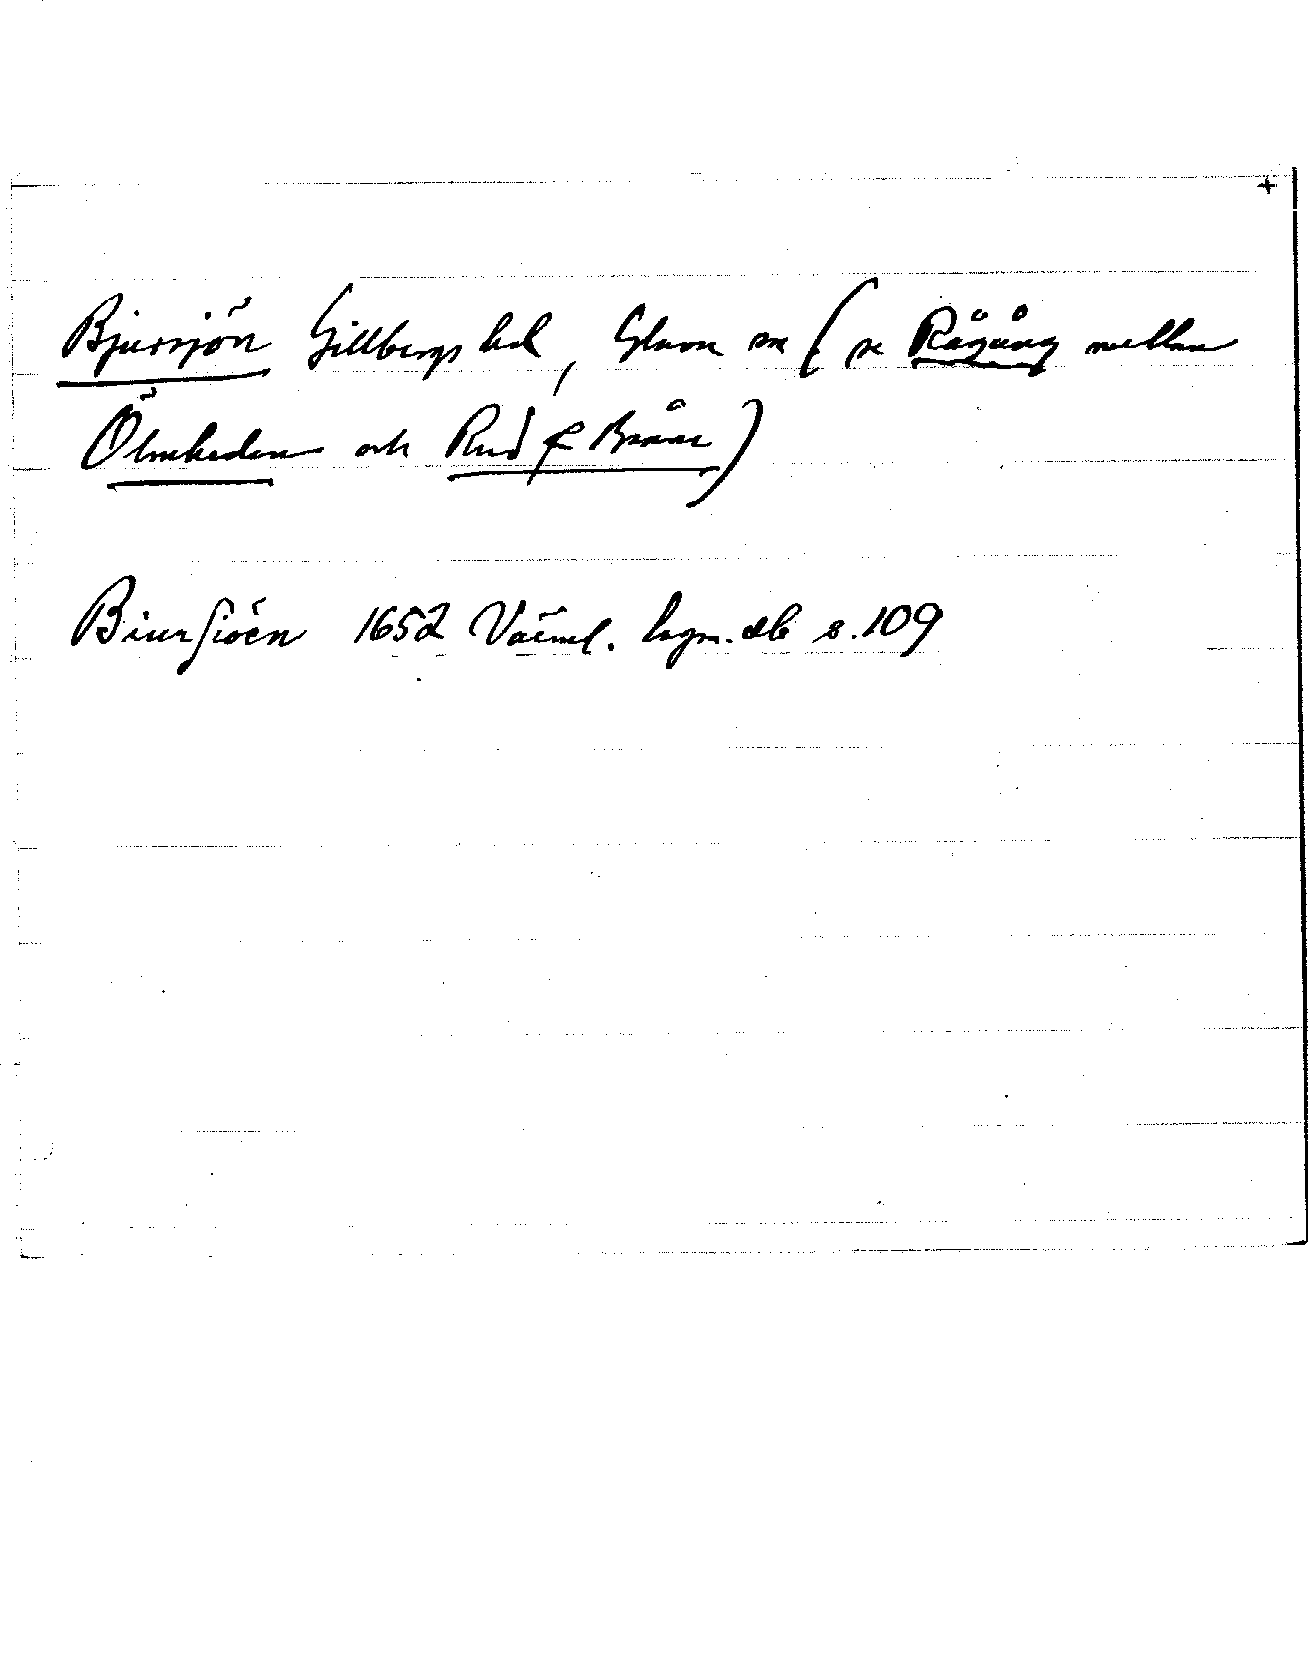 +
Bjursjön Gillbergs hd, Glava sn (se Rågång mellan
Ölmheden och Rud & Bråne)
Biursiöen 1652 Värml. lagm. db s. 109